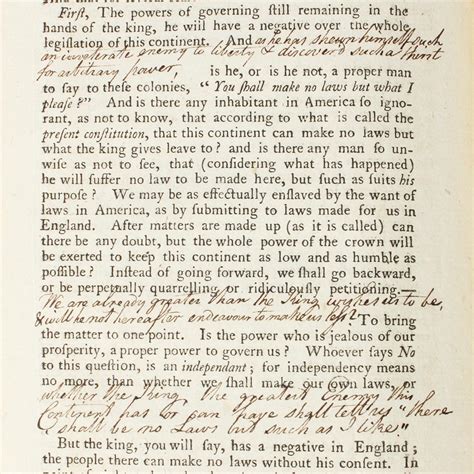 First, The powers of governing still remaining in the
hands of the king, he will have a negative over the whole
legislation of this continent. And as he has shewn himself such
an inveterate enemy to liberty & discover'd such a thirst
for arbitrary power, is he, or is he not, a proper man
to say to these colonies, "You shall make no laws but what I
please?" And is there any inhabitant in America so igno-
rant, as not to know, that according to what is called the
present constitution, that this continent can make no laws but
what the king gives leave to? and is there any man so un-
wise as not to see, that (considering what has happened)
he will suffer no law to be made here, but such as suits his
purpose? We may be as effectually enslaved by the want of
laws in America, as by submitting to laws made for us in
England. After matters are made up (as it is called) can
there be any doubt, but the whole power of the crown will
be exerted to keep this continent as low and as humble as
possible? Instead of going forward, we shall go backward,
or be perpetually quarrelling or ridiculously petitioning.—
We are already greater than the King wishes us to be,
& will he not hereafter endeavour to make us less? To bring
the matter to one point. Is the power who is jealous of our
prosperity, a proper power to govern us? Whoever says No
to this question, is an independant; for independency means
no more, than whether we shall make our own laws, or
whether the King the greatest Enemy this
Continent has or can have shall tell us "there
shall be no Laws but such as I like"
But the king, you will say, has a negative in England;
the people there can make no laws without his consent. In